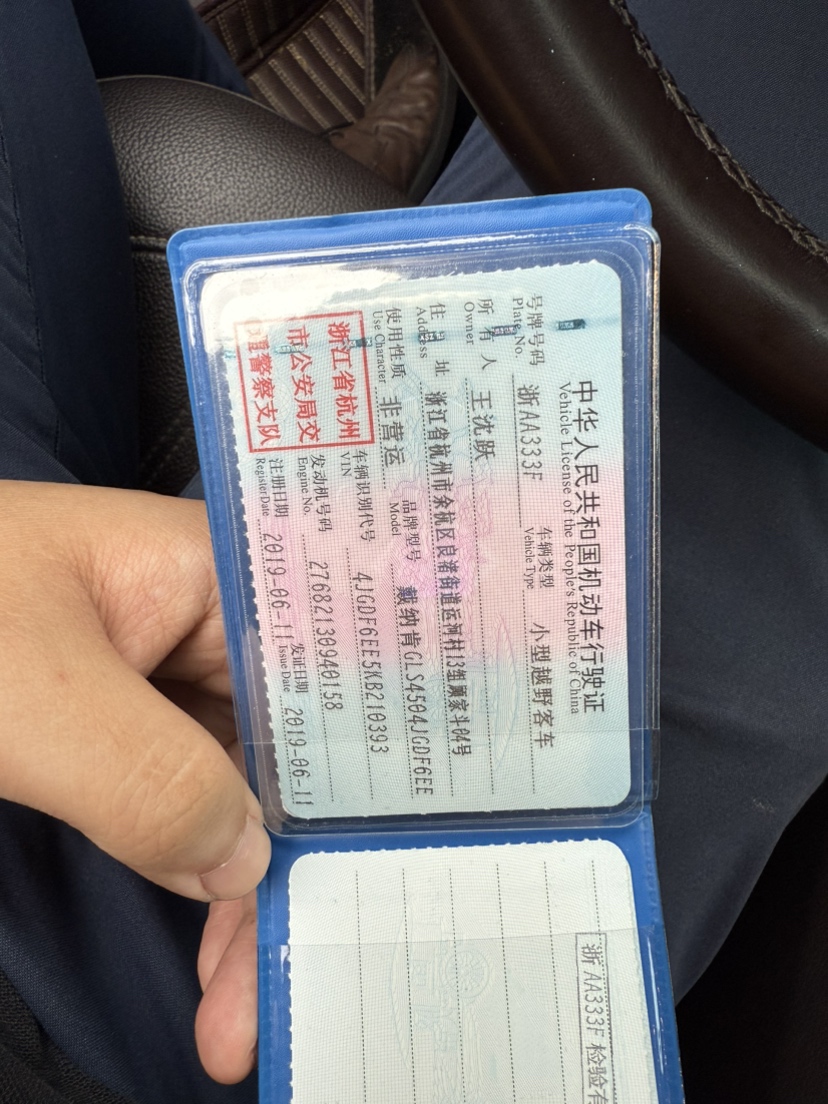 中华人民共和国机动车行驶证
Vehicle License of the People's Republic of China
号牌号码 浙AA333F 车辆类型 小型越野客车
Plate No. Vehicle Type
所有人 王沈跃
Owner
住址 浙江省杭州市余杭区良渚街道运河村13组顾家斗04号
Address
使用性质 非营运 品牌型号 戴纳肯GLS4504JGDF6EE
Use Character Model
浙江省杭州
市公安局交
警察支队
车辆识别代号 4JGDF6EE5KB210393
VIN
发动机号码 27682130940158
Engine No.
注册日期 2019-06-11 发证日期 2019-06-11
Register Date Issue Date
浙AA333F 检验有